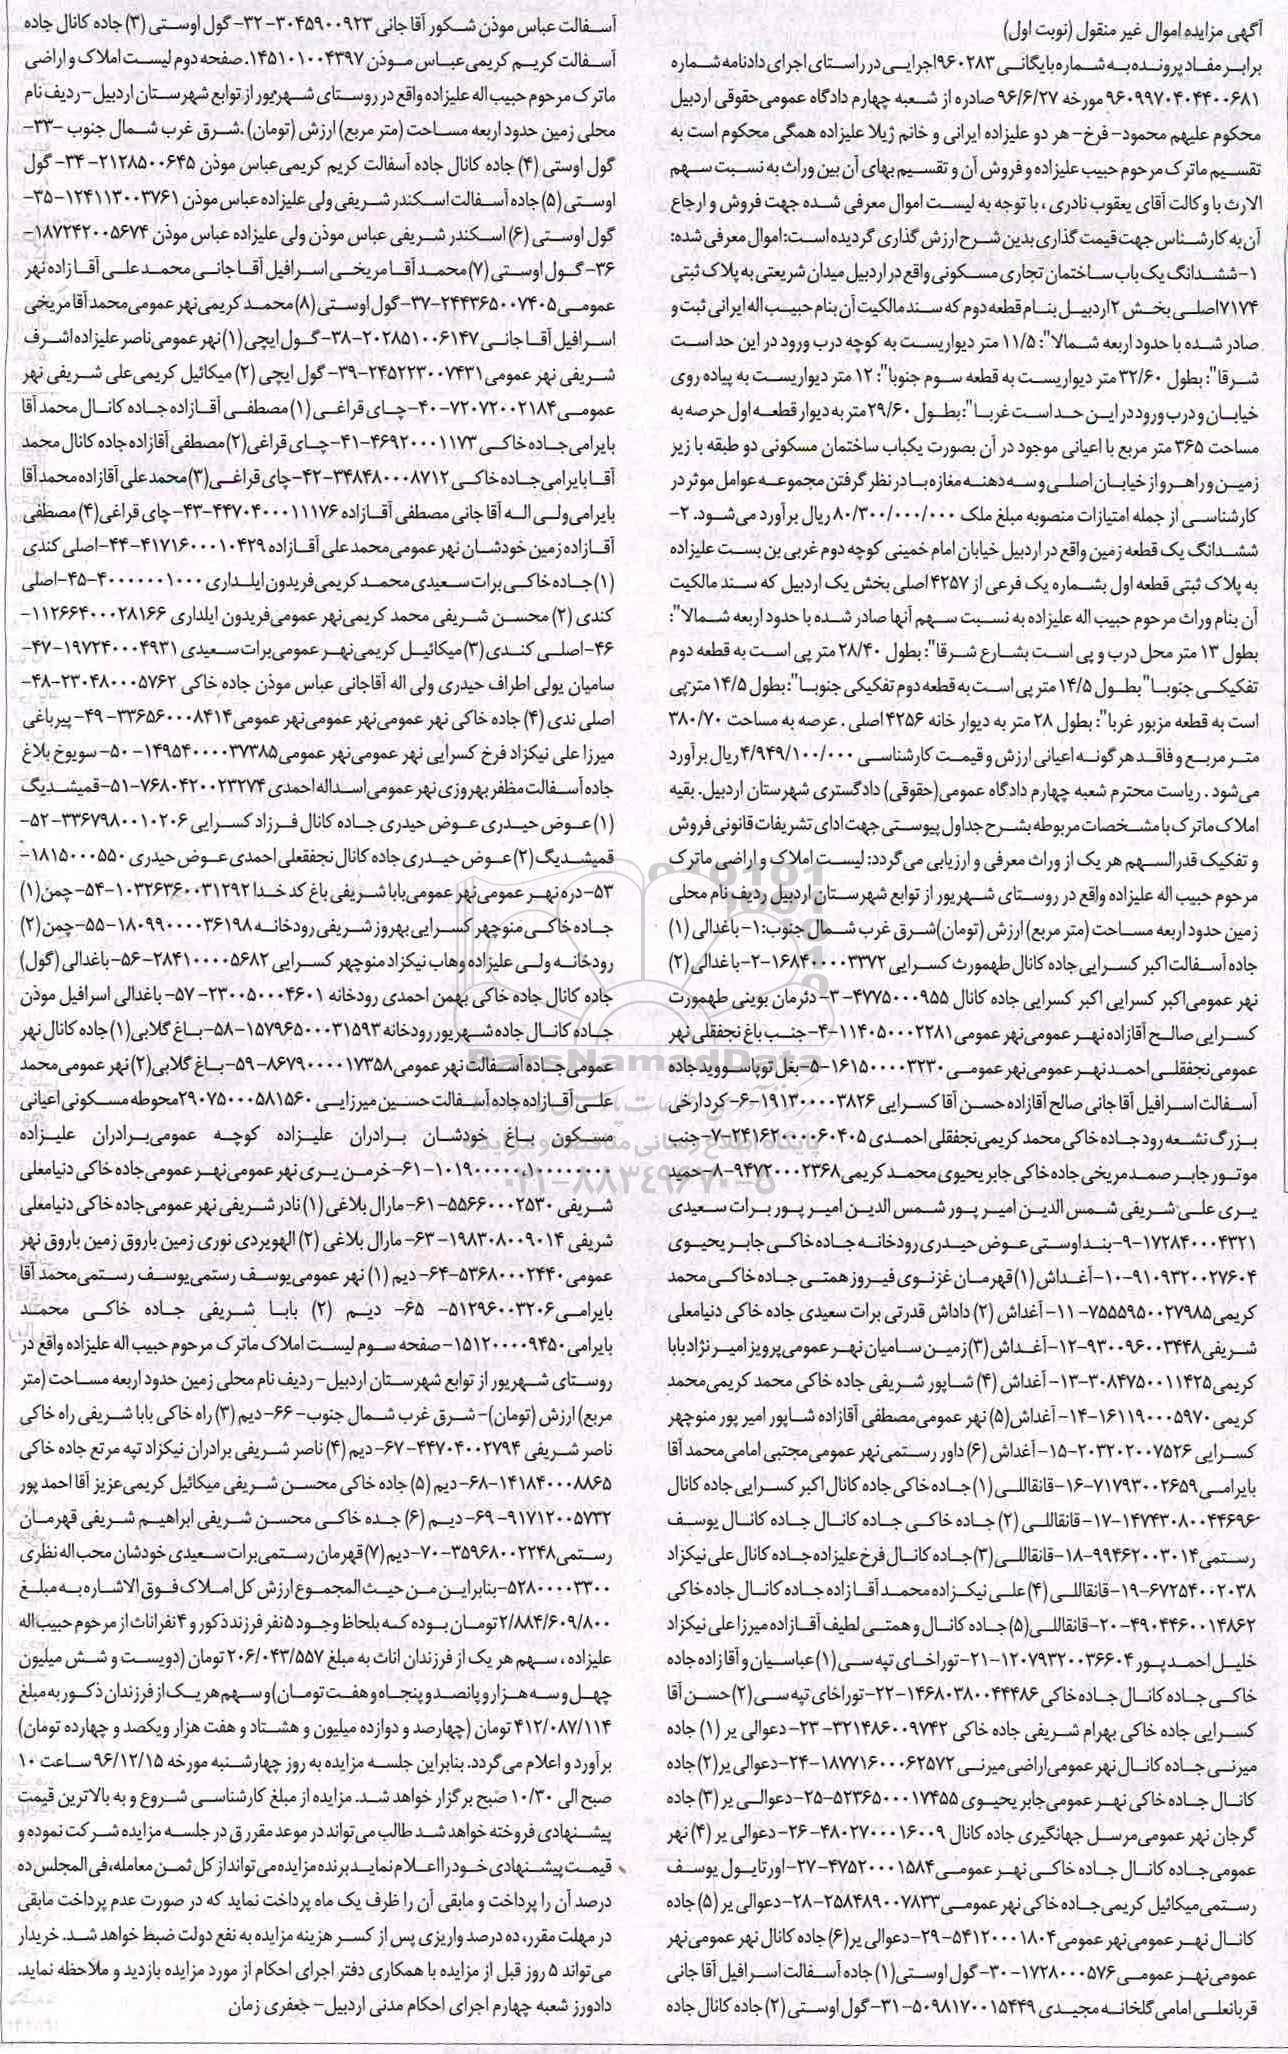 آگهی مزایده اموال غیر منقول (نوبت اول)
برابر مفاد پرونده به شماره بایگانی ۹۶۰۲۸۳اجرایی در راستای اجرای دادنامه شماره
۹۶۰۹۹۷۰۴۰۴۴۰۰۶۸۱ مورخه ۹۶/۶/۲۷ صادره از شعبه چهارم دادگاه عمومی حقوقی اردبیل
محکوم علیهم محمود- فرخ- هر دو علیزاده ایرانی و خانم ژیلا علیزاده همگی محکوم است به
تقسیم ماترک مرحوم حبیب علیزاده و فروش آن و تقسیم بهای آن بین وراث به نسبت سهم
الارث با وکالت آقای یعقوب نادری ، با توجه به لیست اموال معرفی شده جهت فروش و ارجاع
آن به کارشناس جهت قیمت گذاری بدین شرح ارزش گذاری گردیده است: اموال معرفی شده:
۱- ششدانگ یک باب ساختمان تجاری مسکونی واقع در اردبیل میدان شریعتی به پلاک ثبتی
۷۱۷۴اصلی بخش ۲اردبیل بنام قطعه دوم که سند مالکیت آن بنام حبیب اله ایرانی ثبت و
صادر شده با حدود اربعه شمالا": ۱۱/۵ متر دیواریست به کوچه درب ورود در این حد است
شرقا": بطول ۳۲/۶۰ متر دیواریست به قطعه سوم جنوبا": ۱۲ متر دیواریست به پیاده روی
خیابان و درب ورود در این حد است غربا":بطول ۲۹/۶۰ متر به دیوار قطعه اول حرصه به
مساحت ۳۶۵ متر مربع با اعیانی موجود در آن بصورت یکباب ساختمان مسکونی دو طبقه با زیر
زمین و راهرو از خیابان اصلی و سه دهنه مغازه با در نظر گرفتن مجموعه عوامل موثر در
کارشناسی از جمله امتیازات منصوبه مبلغ ملک ۸۰/۳۰۰/۰۰۰/۰۰۰ ریال برآورد می‌شود. ۲-
ششدانگ یک قطعه زمین واقع در اردبیل خیابان امام خمینی کوچه دوم غربی بن بست علیزاده
به پلاک ثبتی قطعه اول بشماره یک فرعی از ۴۲۵۷ اصلی بخش یک اردبیل که سند مالکیت
آن بنام وراث مرحوم حبیب اله علیزاده به نسبت سهم آنها صادر شده با حدود اربعه شمالا":
بطول ۱۳ متر محل درب و پی است بشارع شرقا": بطول ۲۸/۴۰ متر پی است به قطعه دوم
تفکیکی جنوبا" بطول ۱۴/۵ متر پی است به قطعه دوم تفکیکی جنوبا": بطول ۱۴/۵ متر پی
است به قطعه مزبور غربا": بطول ۲۸ متر به دیوار خانه ۴۲۵۶ اصلی . عرصه به مساحت ۳۸۰/۷۰
متر مربع و فاقد هر گونه اعیانی ارزش و قیمت کارشناسی ۴/۹۴۹/۱۰۰/۰۰۰ریال برآورد
می‌شود . ریاست محترم شعبه چهارم دادگاه عمومی(حقوقی) دادگستری شهرستان اردبیل. بقیه
املاک ماترک با مشخصات مربوطه بشرح جداول پیوستی جهت ادای تشریفات قانونی فروش
و تفکیک قدرالسهم هر یک از وراث معرفی و ارزیابی می‌گردد: لیست املاک و اراضی ماترک
مرحوم حبیب اله علیزاده واقع در روستای شهریور از توابع شهرستان اردبیل ردیف نام محلی
زمین حدود اربعه مساحت (متر مربع) ارزش (تومان)شرق غرب شمال جنوب:۱- باغدالی (۱)
جاده آسفالت اکبر کسرایی جاده کانال طهمورث کسرایی ۱۶۸۴۰۰۰۰۳۳۷۲-۲-باغدالی (۲)
نهر عمومی‌اکبر کسرایی اکبر کسرایی جاده کانال ۴۷۷۵۰۰۰۹۵۵- ۳- دئرمان بوینی طهمورت
کسرایی صالح آقازاده نهر عمومی‌نهر عمومی ۱۱۴۰۵۰۰۰۲۲۸۱-۴-جنب باغ نجفقلی نهر
عمومی نجفقلی احمد نهر عمومی‌نهر عمومی ۱۶۱۵۰۰۰۰۳۲۳۰-۵-بغل توپاسووید جاده
آسفالت اسرافیل آقا جانی صالح آقازاده حسن آقا کسرایی ۱۹۱۳۰۰۰۰۳۸۲۶-۶- کردارخی
بزرگ نشعه رود جاده خاکی محمد کریمی نجفقلی احمدی ۲۴۱۶۲۰۰۰۰۶۰۴۰۵-۷-جنب
موتور جابر صمد مریخی جاده خاکی جابر یحیوی محمد کریمی۹۴۷۲۰۰۰۲۳۶۸-۸-حمید
یری علی شریفی شمس الدین امیر پور شمس الدین امیر پور برات سعیدی
۱۷۲۸۴۰۰۰۴۳۲۱-۹-بنداوستی عوض حیدری رودخانه جاده خاکی جابر یحیوی
۹۱۰۹۳۲۰۰۲۷۶۰۴-۱۰-آغداش (۱)قهرمان غزنوی فیروز همتی جاده خاکی محمد
کریمی۷۵۵۵۹۵۰۰۲۷۹۸۵- ۱۱- آغداش (۲) داداش قدرتی برات سعیدی جاده خاکی دنیامعلی
شریفی۹۳۰۰۹۶۰۰۳۴۴۸-۱۲-آغداش (۳)زمین سامیان نهر عمومی‌پرویز امیر نژاد بابا
کریمی۳۰۸۴۷۵۰۰۱۱۴۲۵-۱۳- آغداش (۴) شاپور شریفی جاده خاکی محمد کریمی‌محمد
کریمی ۱۶۱۱۹۰۰۰۵۹۷۰-۱۴- آغداش(۵) نهر عمومی‌مصطفی آقازاده شاپور امیر پور منوچهر
کسرایی ۲۰۳۲۰۲۰۰۷۵۲۶-۱۵- آغداش (۶) داور رستمی‌نهر عمومی‌مجتبی امامی‌محمد آقا
بایرامی۷۱۷۹۳۰۰۲۶۵۹-۱۶-قانقاللی (۱)جاده خاکی جاده کانال اکبر کسرایی جاده کانال
۱۴۷۴۳۰۸۰۰۴۴۶۹۶-۱۷- قانقاللی (۲) جاده خاکی جاده کانال جاده کانال یوسف
رستمی۹۹۴۶۲۰۰۳۰۱۴-۱۸-قانقاللی(۳)جاده کانال فرخ علیزاده جاده کانال علی نیکزاد
۶۷۲۵۴۰۰۲۰۳۸-۱۹-قانقاللی (۴) علی نیکزاده محمد آقازاده جاده کانال جاده خاکی
۴۹۰۴۴۶۰۰۱۴۸۶۲-۲۰-قانقاللی(۵) جاده کانال و همتی لطیف آقازاده میرزا علی نیکزاد
خلیل احمد پور ۱۲۰۷۹۳۲۰۰۳۶۶۰۴-۲۱-توراخای تپه سی (۱)عباسیان و آقازاده جاده
خاکی جاده کانال جاده خاکی ۱۴۶۸۰۳۸۰۰۴۴۴۸۶-۲۲-توراخای تپه سی (۲)حسن آقا
کسرایی جاده خاکی بهرام شریفی جاده خاکی ۳۲۱۴۸۶۰۰۹۷۴۲- ۲۳-دعوالی یر (۱) جاده
میرنی جاده کانال نهر عمومی‌اراضی میرنی ۱۸۷۷۱۶۰۰۰۶۲۵۷۲-۲۴-دعوالی یر(۲) جاده
کانال جاده خاکی نهر عمومی‌جابر یحیوی ۵۲۳۶۵۰۰۰۱۷۴۵۵-۲۵-دعوالی یر(۳) جاده
گرجان نهر عمومی‌مرسل جهانگیری جاده کانال ۴۸۰۲۷۰۰۰۱۶۰۰۹-۲۶-دعوالی یر (۴) نهر
عمومی‌جاده کانال جاده خاکی نهر عمومی۴۷۵۲۰۰۰۱۵۸۴-۲۷-اورتایول یوسف
رستمی میکائیل کریمی‌جاده خاکی نهر عمومی۲۵۸۴۸۹۰۰۷۸۳۳-۲۸-دعوالی یر(۵) جاده
کانال نهر عمومی‌نهر عمومی۵۴۱۲۰۰۰۱۸۰۴-۲۹-دعوالی یر(۶) جاده کانال نهر عمومی‌نهر
عمومی‌نهر عمومی۱۷۲۸۰۰۰۵۷۶-۳۰-گول اوستی(۱) جاده آسفالت اسرافیل آقا جانی
قربانعلی امامی گلخانه مجیدی ۵۰۹۸۱۷۰۰۱۵۴۴۹-۳۱-گول اوستی (۲) جاده کانال جاده
آسفالت عباس موذن شکور آقا جانی ۳۰۴۵۹۰۰۹۲۳-۳۲-گول اوستی (۳) جاده کانال جاده
آسفالت کریم کریمی‌عباس موذن ۱۴۵۱۰۱۰۰۴۳۹۷.صفحه دوم لیست املاک و اراضی
ماترک مرحوم حبیب اله علیزاده واقع در روستای شهریور از توابع شهرستان اردبیل-ردیف نام
محلی زمین حدود اربعه مساحت (متر مربع) ارزش (تومان) .شرق غرب شمال جنوب -۳۳-
گول اوستی (۴) جاده کانال جاده آسفالت کریم کریمی‌عباس موذن ۲۱۲۸۵۰۰۶۴۵- ۳۴-گول
اوستی (۵) جاده آسفالت اسکندر شریفی ولی علیزاده عباس موذن ۱۲۴۱۱۳۰۰۳۷۶۱-۳۵-
گول اوستی (۶) اسکندر شریفی عباس موذن ولی علیزاده عباس موذن ۱۸۷۲۴۲۰۰۵۶۷۴-
۳۶-گول اوستی (۷) محمد آقا مریخی اسرافیل آقا جانی محمد علی آقازاده نهر
عمومی۲۴۴۳۶۵۰۰۷۴۰۵-۳۷-گول اوستی (۸) محمد کریمی‌نهر عمومی‌محمد آقا مریخی
اسرافیل آقا جانی ۲۰۲۸۵۱۰۰۶۱۴۷-۳۸-گول ایچی (۱) نهر عمومی‌ناصر علیزاده اشرف
شریفی نهر عمومی۲۴۵۲۲۳۰۰۷۴۳۱-۳۹-گول ایچی (۲) میکائیل کریمی‌علی شریفی نهر
عمومی۷۲۰۷۲۰۰۲۱۸۴-۴۰-چای قراغی (۱) مصطفی آقازاده جاده کانال محمد آقا
بایرامی‌جاده خاکی ۴۶۹۲۰۰۰۱۱۷۳-۴۱-چای قراغی(۲) مصطفی آقازاده جاده کانال محمد
آقا بایرامی‌جاده خاکی ۳۴۸۴۸۰۰۰۸۷۱۲-۴۲-چای قراغی(۳) محمد علی آقازاده محمد آقا
بایرامی‌ولی اله آقا جانی مصطفی آقازاده ۴۴۷۰۴۰۰۰۱۱۱۷۶-۴۳-چای قراغی(۴) مصطفی
آقازاده زمین خودشان نهر عمومی‌محمد علی آقازاده ۴۱۷۱۶۰۰۰۱۰۴۲۹-۴۴-اصلی کندی
(۱) جاده خاکی برات سعیدی محمد کریمی‌فریدون ایلداری ۴۰۰۰۰۰۰۱۰۰۰-۴۵-اصلی
کندی (۲) محسن شریفی محمد کریمی‌نهر عمومی‌فریدون ایلداری ۱۱۲۶۶۴۰۰۰۲۸۱۶۶-
۴۶-اصلی کندی (۳) میکائیل کریمی‌نهر عمومی‌برات سعیدی ۱۹۷۲۴۰۰۰۴۹۳۱-۴۷-
سامیان یولی اطراف حیدری ولی اله آقاجانی عباس موذن جاده خاکی ۲۳۰۴۸۰۰۰۵۷۶۲-۴۸-
اصلی ندی (۴) جاده خاکی نهر عمومی‌نهر عمومی‌نهر عمومی ۳۳۶۵۶۰۰۰۸۴۱۴-۴۹-پیرباغی
میرزا علی نیکزاد فرخ کسرایی نهر عمومی‌نهر عمومی۱۴۹۵۴۰۰۰۰۳۷۳۸۵-۵۰-سویوخ بلاغ
جاده آسفالت مظفر بهروزی نهر عمومی‌اسداله احمدی ۷۶۸۰۴۲۰۰۲۳۲۷۴-۵۱-قمیشدیگ
(۱) عوض حیدری عوض حیدری جاده کانال فرزاد کسرایی ۳۳۶۷۹۸۰۰۱۰۲۰۶-۵۲-
قمیشدیگ (۲) عوض حیدری جاده کانال نجفقعلی احمدی عوض حیدری ۱۸۱۵۰۰۰۵۵۰-
۵۳-دره نهر عمومی‌نهر عمومی‌بابا شریفی باغ کدخدا ۱۰۳۲۶۳۶۰۰۳۱۲۹۲-۵۴-چمن(۱)
جاده خاکی منوچهر کسرایی بهروز شریفی رودخانه ۱۸۰۹۹۰۰۰۰۳۶۱۹۸-۵۵-چمن(۲)
رودخانه ولی علیزاده وهاب نیکزاد منوچهر کسرایی ۲۸۴۱۰۰۰۰۵۶۸۲-۵۶-باغدالی (گول)
جاده کانال جاده خاکی بهمن احمدی رودخانه ۲۳۰۰۵۰۰۰۴۶۰۱-۵۷-باغدالی اسرافیل موذن
جاده کانال جاده شهریور رودخانه ۱۵۷۹۶۵۰۰۰۳۱۵۹۳-۵۸-باغ گلابی(۱) جاده کانال نهر
عمومی‌جاده آسفالت نهر عمومی۸۶۷۹۰۰۰۰۱۷۳۵۸-۵۹-باغ گلابی(۲) نهر عمومی‌محمد
علی آقازاده جاده آسفالت حسین میرزایی ۲۹۰۷۵۰۰۰۵۸۱۵۶۰محوطه مسکونی اعیانی
مسکون باغ خودشان برادران علیزاده کوچه عمومی‌برادران علیزاده
۱۰۱۹۰۰۰۰۰.۱۰۰۰۰۰۰۰۰۰-۶۱-خرمن یری نهر عمومی‌نهر عمومی‌جاده خاکی دنیامعلی
شریفی ۵۵۶۶۰۰۰۲۵۳۰-۶۱-مارال بلاغی (۱) نادر شریفی نهر عمومی‌جاده خاکی دنیامعلی
شریفی ۱۹۸۳۰۸۰۰۹۰۱۴-۶۳-مارال بلاغی (۲) الهویردی نوری زمین باروق زمین باروق نهر
عمومی۵۳۶۸۰۰۰۲۴۴۰-۶۴-دیم (۱) نهر عمومی‌یوسف رستمی‌یوسف رستمی‌محمد آقا
بایرامی۵۱۲۹۶۰۰۳۲۰۶- ۶۵- دیم (۲) بابا شریفی جاده خاکی محمد
بایرامی۱۵۱۲۰۰۰۰۹۴۵۰-صفحه سوم لیست املاک ماترک مرحوم حبیب اله علیزاده واقع در
روستای شهریور از توابع شهرستان اردبیل-ردیف نام محلی زمین حدود اربعه مساحت (متر
مربع) ارزش (تومان)-شرق غرب شمال جنوب-۶۶-دیم (۳) راه خاکی بابا شریفی راه خاکی
ناصر شریفی ۴۴۷۰۴۰۰۲۷۹۴-۶۷-دیم (۴) ناصر شریفی برادران نیکزاد تپه مرتع جاده خاکی
۱۴۱۸۴۰۰۰۸۸۶۵-۶۸-دیم (۵) جاده خاکی محسن شریفی میکائیل کریمی‌عزیز آقا احمد پور
۹۱۷۱۲۰۰۵۷۳۲-۶۹-دیم (۶) جده خاکی محسن شریفی ابراهیم شریفی قهرمان
رستمی۳۵۹۶۸۰۰۲۲۴۸-۷۰-دیم(۷) قهرمان رستمی‌برات سعیدی خودشان محب اله نظری
۵۲۸۰۰۰۰۳۳۰۰-بنابراین من حیث المجموع ارزش کل املاک فوق الاشاره به مبلغ
۲/۸۸۴/۶۰۹/۸۰۰ تومان بوده که بلحاظ وجود ۵نفر فرزند ذکور و ۴ نفر اناث از مرحوم حبیب اله
علیزاده ، سهم هر یک از فرزندان اناث به مبلغ ۲۰۶/۰۴۳/۵۵۷ تومان (دویست و شش میلیون
چهل و سه هزار و پانصد و پنجاه و هفت تومان)و سهم هر یک از فرزندان ذکور به مبلغ
۴۱۲/۰۸۷/۱۱۴ تومان (چهارصد و دوازده میلیون و هشتاد و هفت هزار و یکصد و چهارده تومان)
برآورد و اعلام می گردد. بنابراین جلسه مزایده به روز چهارشنبه مورخه ۹۶/۱۲/۱۵ ساعت ۱۰
صبح الی ۱۰/۳۰ صبح برگزار خواهد شد. مزایده از مبلغ کارشناسی شروع و به بالاترین قیمت
پیشنهادی فروخته خواهد شد طالب می‌تواند در موعد مقرر ق در جلسه مزایده شرکت نموده و
قیمت پیشنهادی خود را اعلام نماید برنده مزایده می تواند از کل ثمن معامله، فی المجلس ده
درصد آن را پرداخت و مابقی آن را ظرف یک ماه پرداخت نماید که در صورت عدم پرداخت مابقی
در مهلت مقرر، ده درصد واریزی پس از کسر هزینه مزایده به نفع دولت ضبط خواهد شد. خریدار
می‌تواند ۵ روز قبل از مزایده با همکاری دفتر اجرای احکام از مورد مزایده بازدید و ملاحظه نماید.
دادورز شعبه چهارم اجرای احکام مدنی اردبیل- جعفری زمان
ParsNamadData
پایگاه اطلاع رسانی مناقصه و مزایده
۰۲۱-۸۸۳۴۹۶۷۰-۵